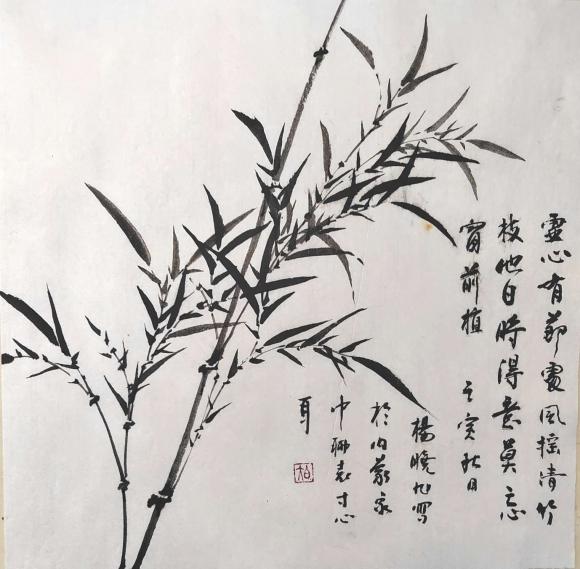 虛心有節處風搖清竹
枝他日時得意莫忘
窗前植 己亥秋日
楊曉旭寫
於内蒙家
中聊表寸心
耳